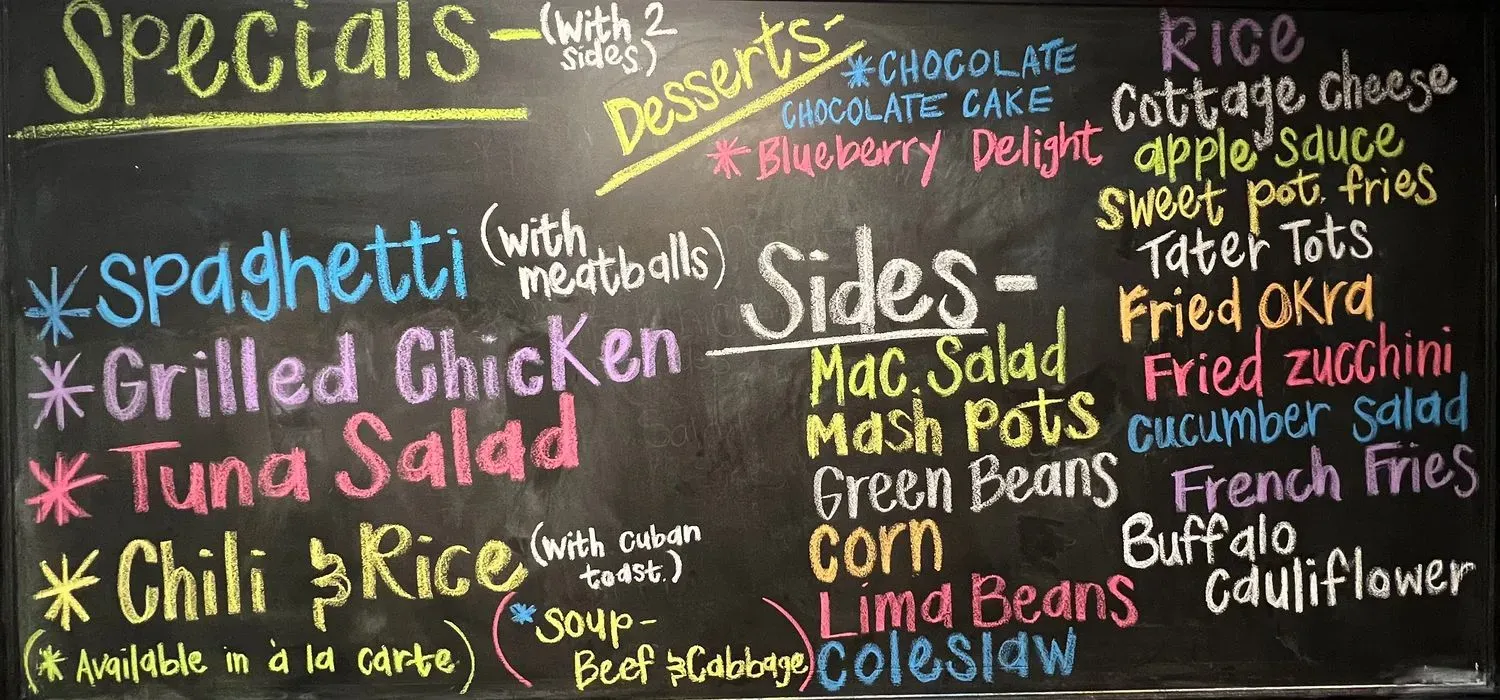 Specials - (with 2
sides)
* Spaghetti (with
meatballs)
* Grilled Chicken
* Tuna Salad
* Chili & Rice (with cuban
toast.)
(* Available in à la carte)
(* Soup -
Beef & Cabbage)
Desserts-
* CHOCOLATE
CHOCOLATE CAKE
* Blueberry Delight
Sides -
Mac. Salad
Mash Pots
Green Beans
Corn
Lima Beans
Coleslaw
Rice
Cottage cheese
apple sauce
sweet pot. fries
Tater Tots
Fried Okra
Fried zucchini
cucumber salad
French Fries
Buffalo
cauliflower